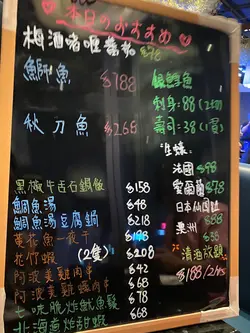 本日のおすすめ
梅酒啫喱蕃茄 $78
鰤魚 $188
秋刀魚 $268
銀鱈魚
刺身=88(2切)
壽司=38(1貫)
生蠔:
法國 $98
愛爾蘭 $78
日本仙鳳趾
澳洲 $38
清酒放題
$188/2HRS
黑椒牛舌石鍋飯 $158
鯛魚湯 $148
鯛魚湯豆腐鍋 $218
黃花魚一夜干 $178
花竹蝦 (2隻) $208
阿波美雞肉串 $42
阿波美雞 $48
七味脆炸魷魚鬚 $68
北海 $78